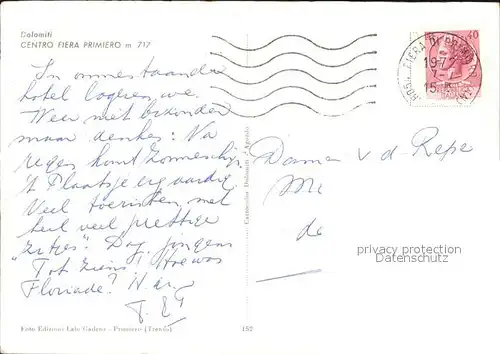 Dolomiti
CENTRO FIERA PRIMIERO m 717
In ommestaande
hotel logeren we.
Weer niet bijzonder
maar denken: Na
regen komt zonneschijn.
't Plaatsje erg aardig
Veel toeristen, met
heel veel prettige
"zitjes" Dag, jongens
Tot ziens. Hoe was
Floriade?
40
FIERA DI PRIMIERO
19-7
15
Damen v d Repe
de
privacy protection
Cartoncolor Dolomiti d'Agordo
Foto Edizioni Lalo Gadenz - Primiero (Trento)
152